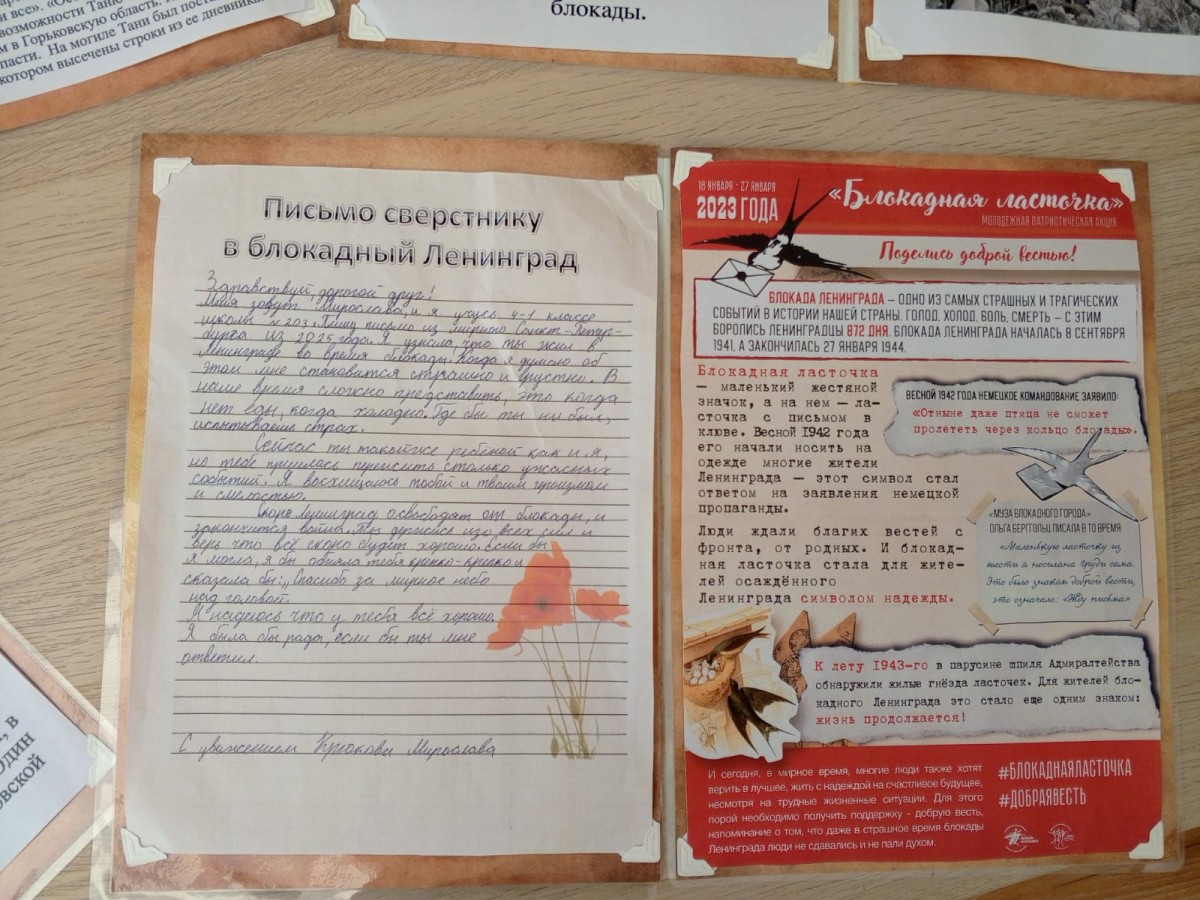 и все». «Ос
возможности Таню
м в Горьковскую область.
пасти. На могиле Тани был пост
котором высечены строки из ее дневника
блокады.
Письмо сверстнику
в блокадный Ленинград
Здравствуй, дорогой друг!
Меня зовут Мирослава, и я учусь 4-1 классе
школы №203. Пишу письмо из мирного Санкт-Петер-
бурга из 2025 года. Я узнала, что ты жил в
Ленинграде во время блокады. Когда я думаю об
этом мне становится страшно и грустно. В
наше время сложно представить, это когда
нет еды, когда холодно. Где бы ты ни был,
испытываешь страх.
Сейчас ты такой же ребёнок как и я,
но тебе пришлось пережить столько ужасных
событий. Я восхищаюсь тобой и твоим героизмом
и смелостью.
Скоро Ленинград освободят от блокады, и
закончится война. Ты держись изо всех сил и
верь что всё скоро будет хорошо. Если бы
я могла, я бы обняла тебя крепко-крепко и
сказала бы: „Спасибо за мирное небо
над головой.
Я надеюсь что у тебя всё хорошо.
Я была бы рада, если бы ты мне
ответил.
С уважением Крюкова Мирослава
18 ЯНВАРЯ - 27 ЯНВАРЯ
2023 ГОДА
«Блокадная ласточка»
МОЛОДЕЖНАЯ ПАТРИОТИЧЕСКАЯ АКЦИЯ
Поделись доброй вестью!
БЛОКАДА ЛЕНИНГРАДА – ОДНО ИЗ САМЫХ СТРАШНЫХ И ТРАГИЧЕСКИХ
СОБЫТИЙ В ИСТОРИИ НАШЕЙ СТРАНЫ. ГОЛОД, ХОЛОД, БОЛЬ, СМЕРТЬ – С ЭТИМ
БОРОЛИСЬ ЛЕНИНГРАДЦЫ 872 ДНЯ. БЛОКАДА ЛЕНИНГРАДА НАЧАЛАСЬ 8 СЕНТЯБРЯ
1941, А ЗАКОНЧИЛАСЬ 27 ЯНВАРЯ 1944.
Блокадная ласточка
— маленький жестяной
значок, а на нем — ла-
сточка с письмом в
клюве. Весной 1942 года
его начали носить на
одежде многие жители
Ленинграда — этот символ стал
ответом на заявления немецкой
пропаганды.
Люди ждали благих вестей с
фронта, от родных. И блокад-
ная ласточка стала для жите-
лей осаждённого
Ленинграда символом надежды.
ВЕСНОЙ 1942 ГОДА НЕМЕЦКОЕ КОМАНДОВАНИЕ ЗАЯВИЛО:
«Отныне даже птица не сможет
пролететь через кольцо блокады».
«МУЗА БЛОКАДНОГО ГОРОДА»
ОЛЬГА БЕРГГОЛЬЦ ПИСАЛА В ТО ВРЕМЯ
«Маленькую ласточку из
жести я носила на груди сама.
Это было знаком доброй вести,
это означало: «Жду письма»
К лету 1943-го в парусине шпиля Адмиралтейства
обнаружили жилые гнёзда ласточек. Для жителей бло-
кадного Ленинграда это стало еще одним знаком:
жизнь продолжается!
И сегодня, в мирное время, многие люди также хотят
верить в лучшее, жить с надеждой на счастливое будущее,
несмотря на трудные жизненные ситуации. Для этого
порой необходимо получить поддержку - добрую весть,
напоминание о том, что даже в страшное время блокады
Ленинграда люди не сдавались и не пали духом.
#БЛОКАДНАЯЛАСТОЧКА
#ДОБРАЯВЕСТЬ
., в
Один
овской